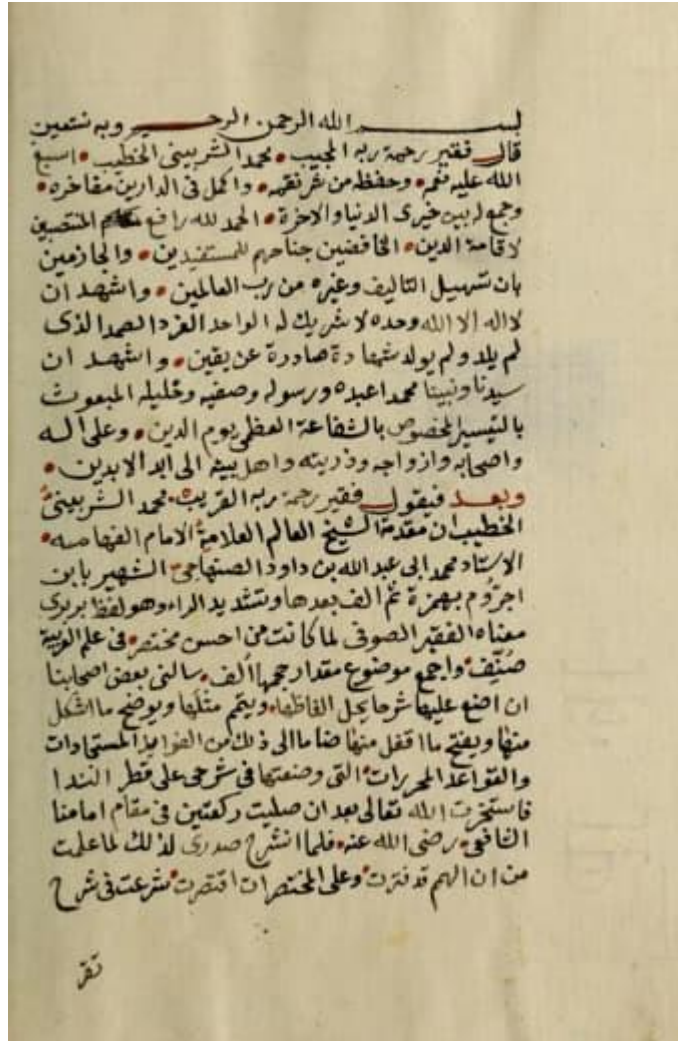 بسم الله الرحمن الرحيم وبه نستعين
قال فقير رحمة ربه المجيب محمد الشربينى الخطيب اسبغ
الله عليه نعمه وحفظه من شر نقمه واكمل فى الدارين مفاخره
وجمع له بين خيرى الدنيا والاخرة الحمد لله رافع مقام المنتصبين
لاقامة الدين الخافضين جناحهم للمستفيدين والجازمين
بان تسهيل التاليف وغيره من رب العالمين واشهد ان
لا اله الا الله وحده لا شريك له الواحد الفرد الصمد الذى
لم يلد ولم يولد شهادة صادرة عن يقين واشهد ان
سيدنا ونبينا محمدا عبده ورسوله وصفيه وخليله المبعوث
بالتيسير المخصوص بالشفاعة العظمى يوم الدين وعلى اله
واصحابه وازواجه وذريته واهل بيته الى ابد الابدين
وبعد فيقول فقير رحمة ربه القريب محمد الشربينى
الخطيب ان مقدمة الشيخ العالم العلامة الامام الفهامه
الاستاد محمد ابى عبد الله بن داود الصنهاجى الشهير بابن
اجرّوم بهمزة ثم الف بعدها وتشديد الراء وهو لفظ بربرى
معناه الفقير الصوفى لما كانت من احسن مختصر فى علم العربية
صُنِّف واجمع موضوع مقدار حجمها ألف سالنى بعض اصحابنا
ان اضع عليها شرحا يحل الفاظها ويتمم مثلها ويوضح ما اشكل
منها ويفتح ما اقفل منها ضاما الى ذلك من الفوايد المستجادات
والقواعد المحررات التى وضعتها فى شرحى على قطر الندا
فاستخرت الله تعالى بعد ان صليت ركعتين فى مقام امامنا
الشافعى رضى الله عنه فلما انشرح صدرى لذلك لما علمت
من ان الهمم قد فترت وعلى المختصرات اقتصرت شرعت فى شرح
تقر